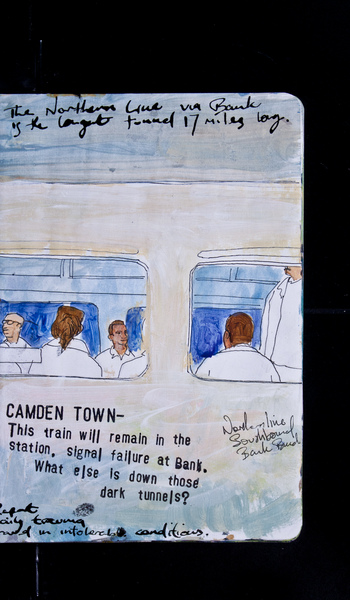 The Northern Line via Bank
is the longest tunnel 17 miles long.
CAMDEN TOWN-
This train will remain in the
station, signal failure at Bank.
What else is down those
dark tunnels?
Northern line
Southbound
Bank
in intolerable conditions.